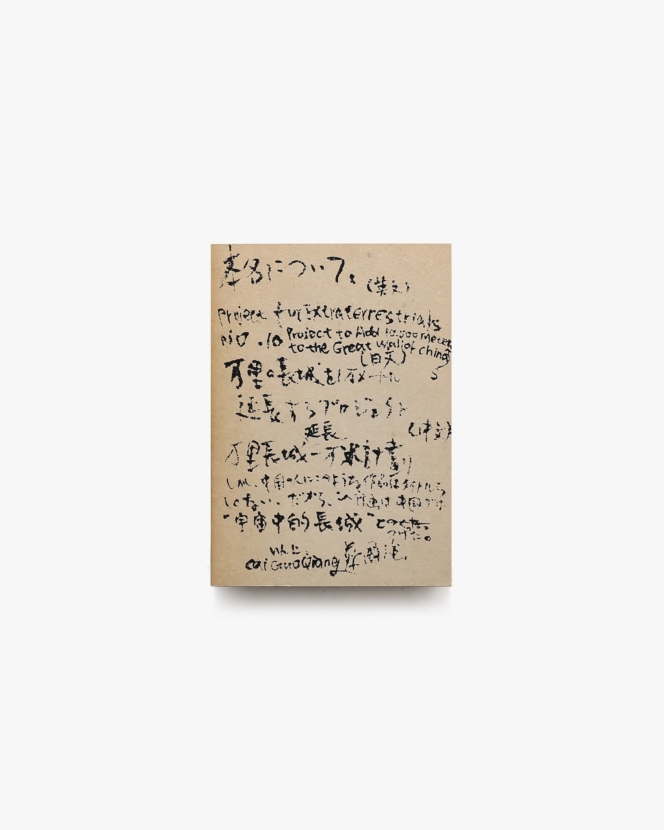 について。(英文)
Project for Extraterrestrials
No .10 Project to Add 10.000 Meters
to the Great Wall of China
(日文)
万里の長城を1万メートル
延長するプロジェクト
延長 (中文)
万里長城一万米計劃
しかし、中国の人にこのような作品はタイトルら
しくない、だから、この計画は中国では
"宇宙中的長城" と
つけた。
Cai Guo Qiang 蔡國強